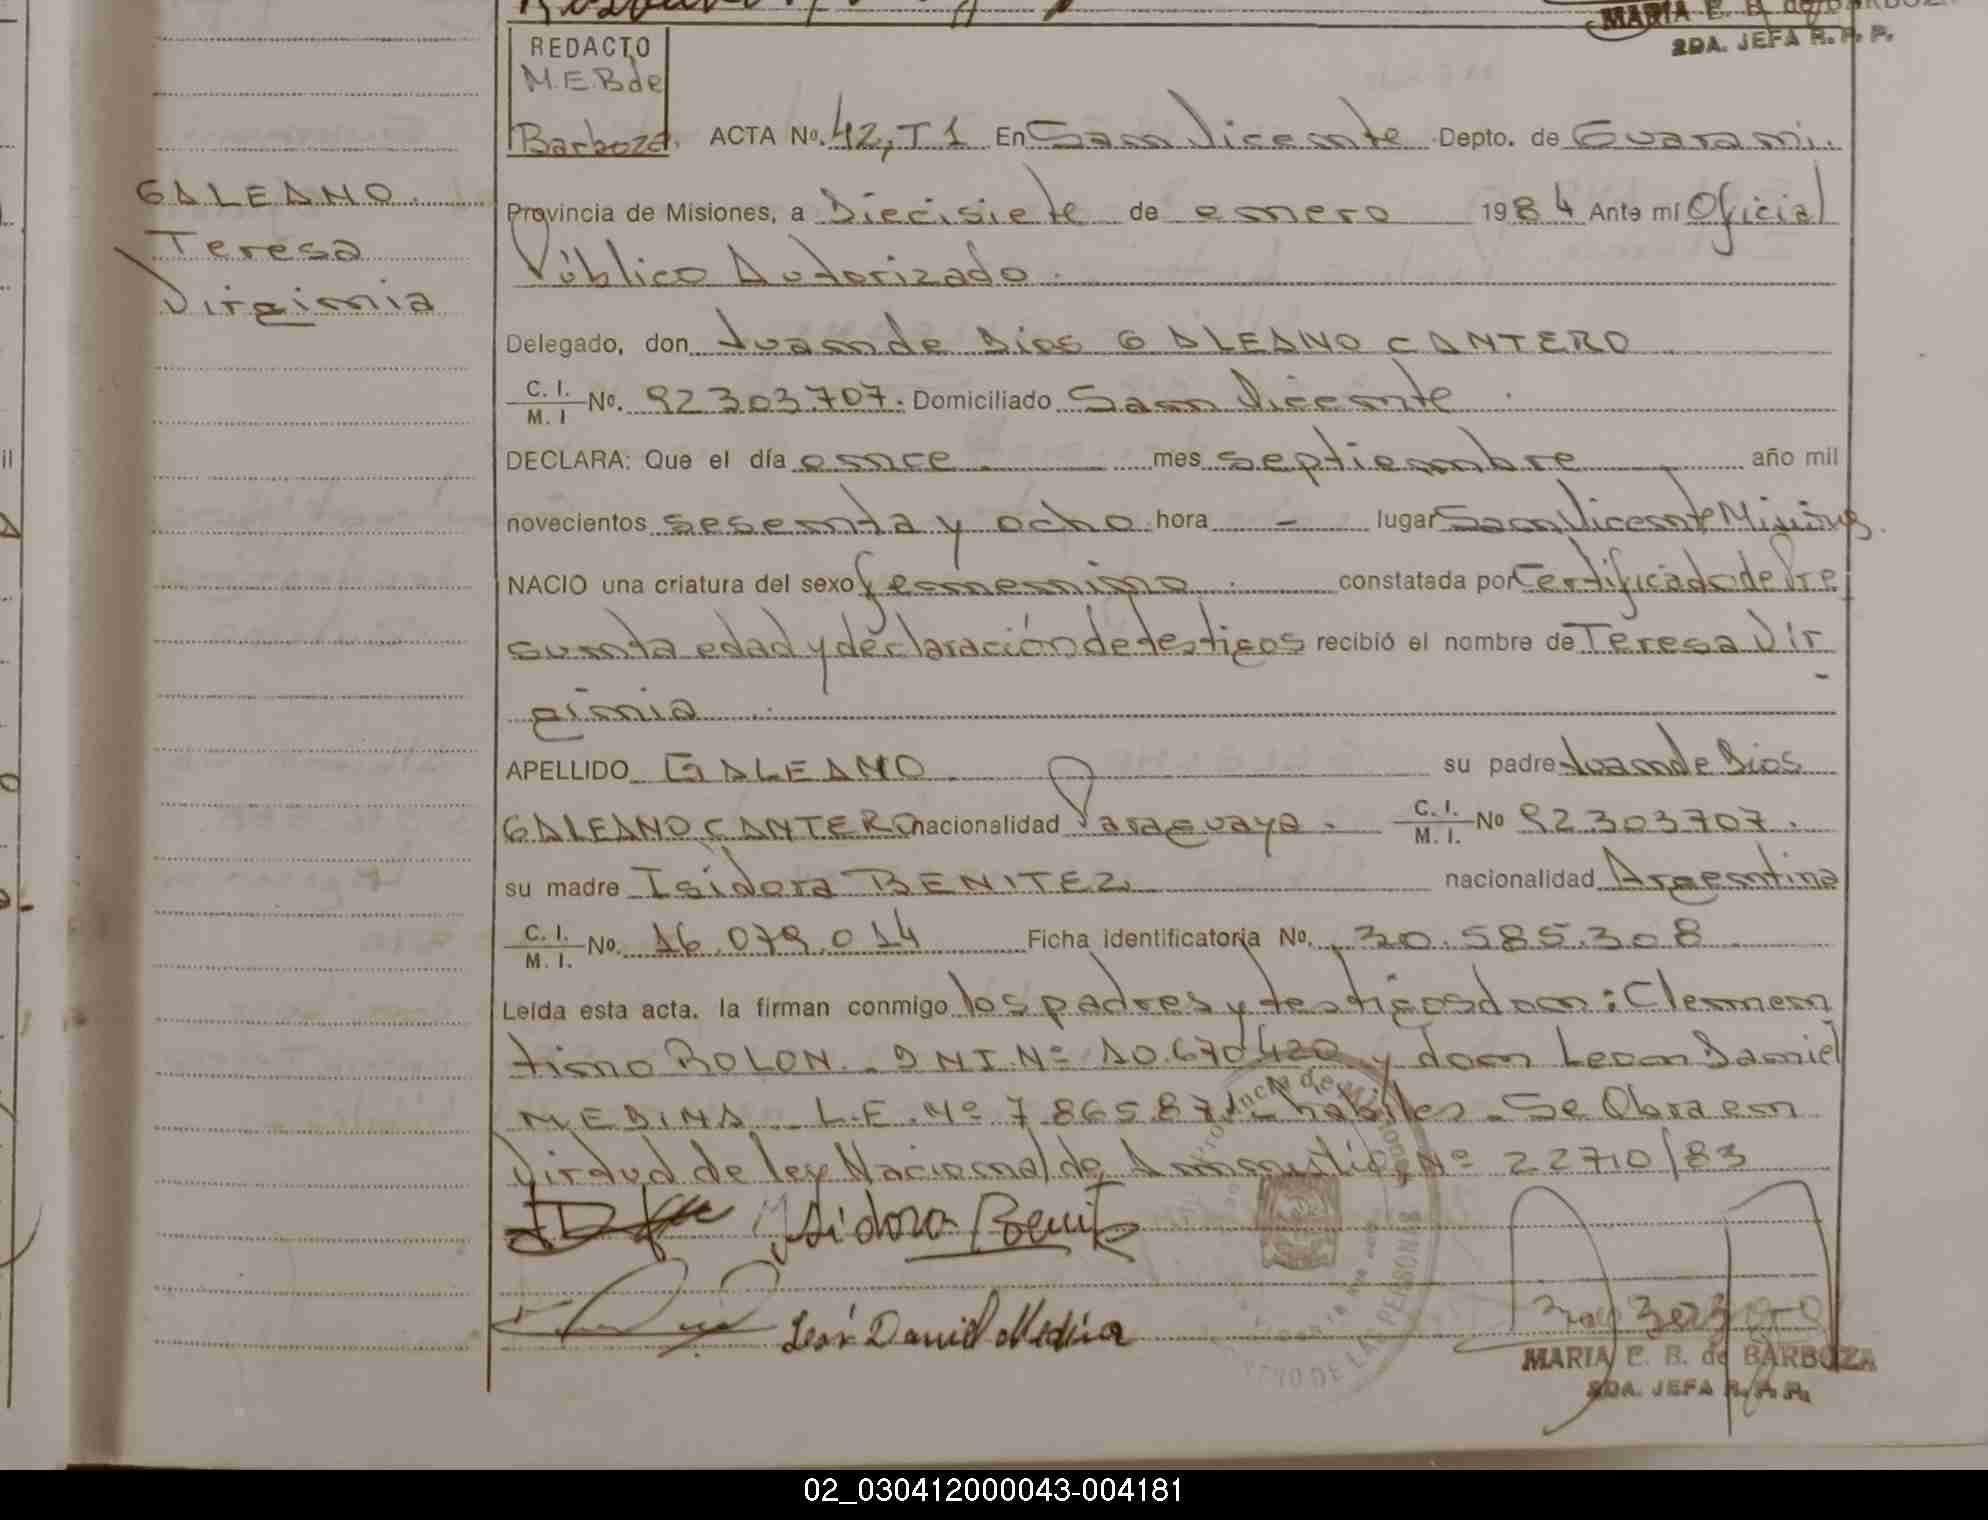 MARIA E. B. de BARBOZA
2DA. JEFA R. P. P.
REDACTO
M.E.B de
Barboza.
ACTA No. 42, T1 En San Vicente Depto. de Guaraní
GALEANO
Teresa
Virginia
Provincia de Misiones, a Diecisiete de enero 1984 Ante mí Oficial
Público Autorizado
Delegado, don Juan de Dios GALEANO CANTERO
C. I. / M. I No. 92303707. Domiciliado San Vicente
DECLARA: Que el día once mes septiembre año mil
novecientos sesenta y ocho hora - lugar San Vicente Misiones
NACIO una criatura del sexo femenino constatada por Certificado de Pre
sunta edad y declaración de testigos recibió el nombre de Teresa Vir-
ginia
APELLIDO GALEANO su padre Juan de Dios
GALEANO CANTERO nacionalidad Paraguaya. C. I. / M. I. No 92303707.
su madre Isidora BENITEZ nacionalidad Argentina
C. I. / M. I. No. 16.079.014 Ficha identificatoria No. 30.585.308
Leída esta acta, la firman conmigo los padres y testigos don: Clemen
tino ROLON. DNI. Nº 10.670420 y don Leon Daniel
MEDINA L.E. Nº 7865871 habiles. Se Obra en
Virtud de ley Nacional de Amnistía Nº 22710/83
Ysidora Benitez
León Daniel Medina
Provincia de Misiones
DE LAS PERSONAS
MARIA E. B. de BARBOZA
2DA. JEFA R. P. P.
02_030412000043-004181